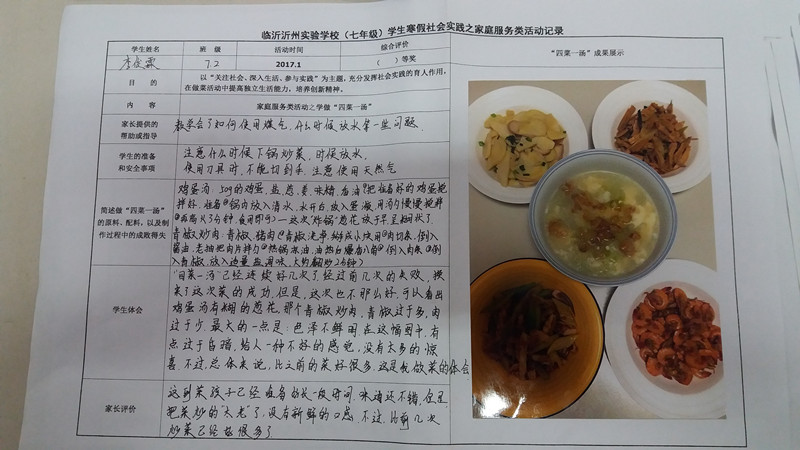 临沂沂州实验学校（七年级）学生寒假社会实践之家庭服务类活动记录
学生姓名 班 级 活动时间 综合评价 “四菜一汤”成果展示
7.2 2017.1 （ ）等奖
目 的 以“关注社会、深入生活、参与实践”为主题，充分发挥社会实践的育人作用，
在做菜活动中提高独立生活能力，培养创新精神。
内 容 家庭服务类活动之学做“四菜一汤”
家长提供的
帮助或指导
教学会了如何使用煤气，什么时候放水等一些问题
学生的准备
和安全事项
注意什么时候下锅炒菜，时候放水，
使用刀具时，不能切到手，注意使用天然气
简述做“四菜一汤”
的原料、配料，以及制
作过程中的成败得失
鸡蛋汤，50g的鸡蛋，盐，葱，姜，味精，香油
锅内放入清水，水开后放入蛋液，用汤勺慢慢搅拌
葱花放于早呈糊状了
青椒炒肉：青椒，猪肉
酱油，老抽把肉片拌匀
入青椒，放入适量盐调味，大约翻炒2分钟
学生体会
“四菜一汤”已经连续好几次了经过前几次的失败，换
来了这次菜的成功，但是，这次也不那么好，可以看出
鸡蛋汤有糊的葱花，那个青椒炒肉，青椒过于多，肉
过于少，最大的一点是：色泽不鲜明，在这幅图中，有
点过于昏暗，给人一种不好的感觉，没有太多的惊
喜，不过，总体来说，比之前的菜好很多，这是我做菜的体会
家长评价
这到菜孩子已经准备的长一段时间，味道还不错，但是
把菜炒的“太老”了，没有新鲜的口感，不过，比前几次
炒菜已经好很多了